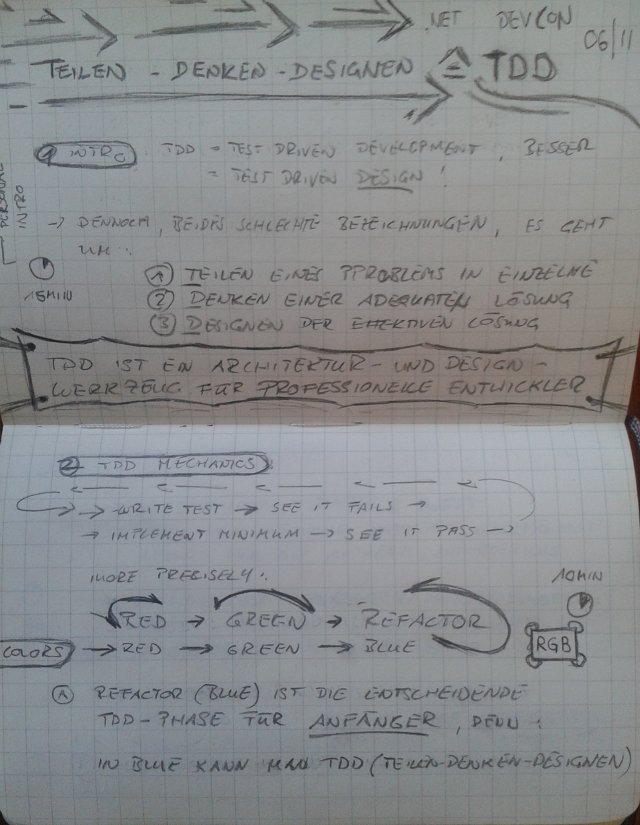 .NET DEVCON
06/11
TEILEN - DENKEN - DESIGNEN ≙ TDD
1 INTRO
TDD = TEST DRIVEN DEVELOPMENT, BESSER
= TEST DRIVEN DESIGN!
PERSONAL
INTRO
→ DENNOCH, BEIDES SCHLECHTE BEZEICHNUNGEN, ES GEHT
UM..
15MIN
1 TEILEN EINES PROBLEMS IN EINZELNE
2 DENKEN EINER ADEQUATEN LÖSUNG
3 DESIGNEN DER EFFEKTIVEN LÖSUNG
TDD IST EIN ARCHITEKTUR- UND DESIGN-
WERKZEUG FÜR PROFESSIONELLE ENTWICKLER
2 TDD MECHANICS
→ WRITE TEST → SEE IT FAILS →
→ IMPLEMENT MINIMUM → SEE IT PASS →
MORE PRECISELY:
10MIN
RED → GREEN → REFACTOR
COLORS → RED → GREEN → BLUE
RGB
A REFACTOR (BLUE) IST DIE ENTSCHEIDENDE
TDD-PHASE FÜR ANFÄNGER, DENN:
IN BLUE KANN MAN TDD (TEILEN-DENKEN-DESIGNEN)